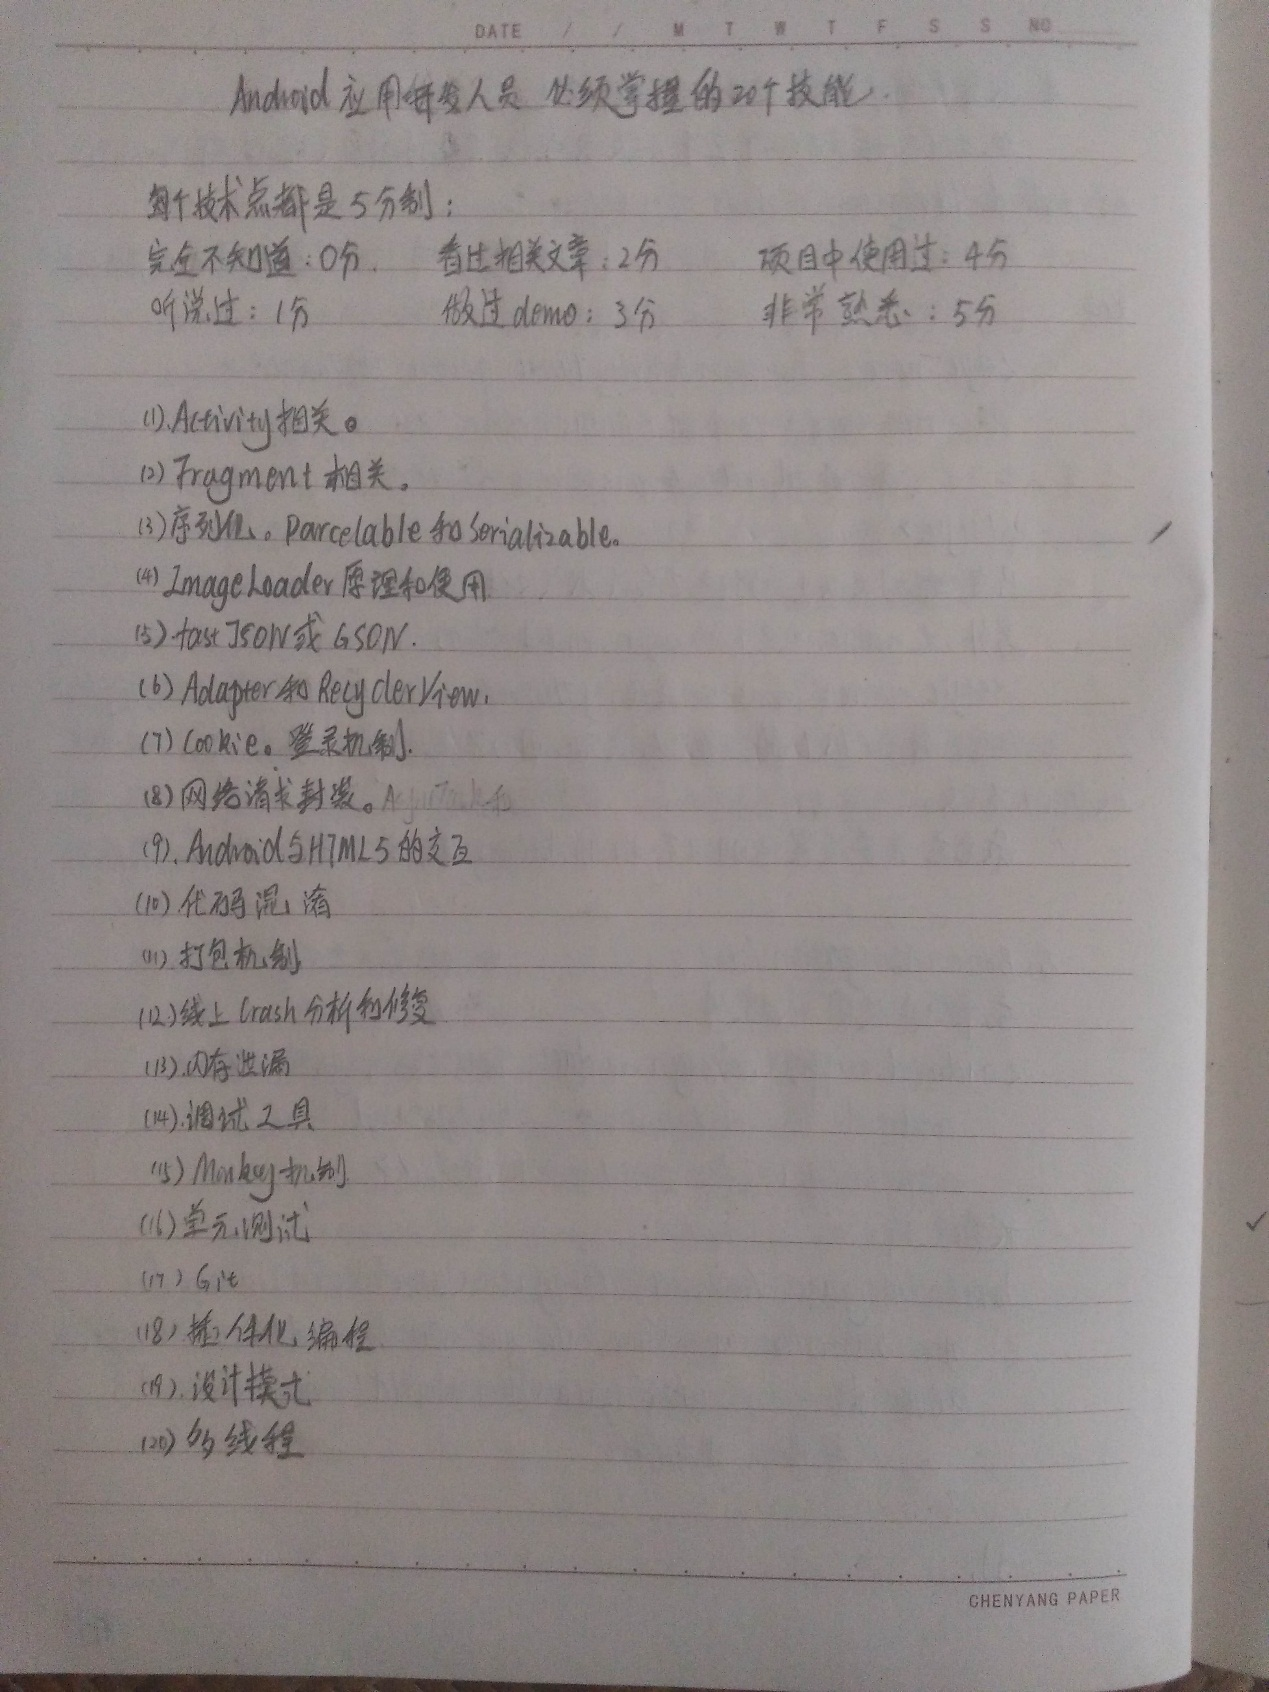 DATE / / M T W T F S S NO
Android应用开发人员 必须掌握的20个技能.
每个技术点都是5分制:
完全不知道:0分. 看过相关文章:2分 项目中使用过:4分
听说过:1分 做过demo:3分 非常熟悉:5分
(1).Activity相关。
(2) Fragment相关。
(3)序列化。Parcelable和Serializable。
(4) ImageLoader原理和使用
(5).fastJSON或GSON.
(6) Adapter和RecyclerView.
(7) Cookie。登录机制.
(8)网络请求封装。
(9).Android与HTML5的交互
(10).代码混淆
(11)打包机制
(12)线上Crash分析和修复
(13).内存泄漏
(14).调试工具
(15) Monkey机制
(16)单元测试
(17) Git
(18).插件化编程
(19).设计模式
(20)多线程
CHENYANG PAPER